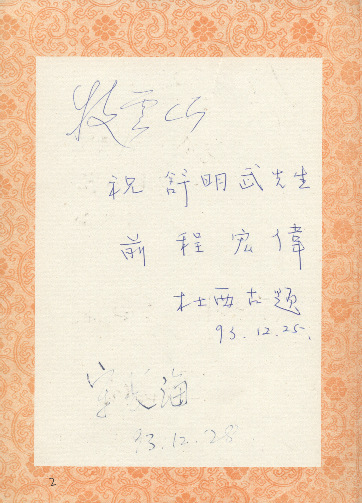 祝 舒明武先生
前程宏偉
杜西古題
93.12.25.
海
93.12.28
2